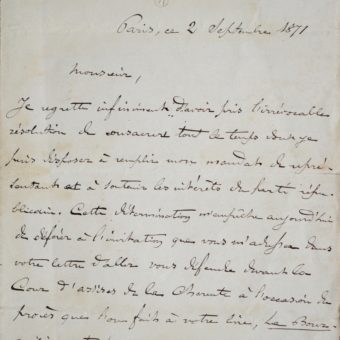 Paris, ce 2 Septembre 1871
Monsieur,
Je regrette infiniment d'avoir pris l'irrévocable
résolution de consacrer tout le temps dont je
puis disposer à remplir mon mandat de repré-
sentant et à soutenir les intérêts du parti répu-
blicain. Cette détermination m'empêche aujourd'hui
de déférer à l'invitation que vous m'adressez dans
votre lettre d'aller vous défendre devant la
Cour d'assises de la Charente à l'occasion du
procès que l'on fait à votre livre, La Bour-